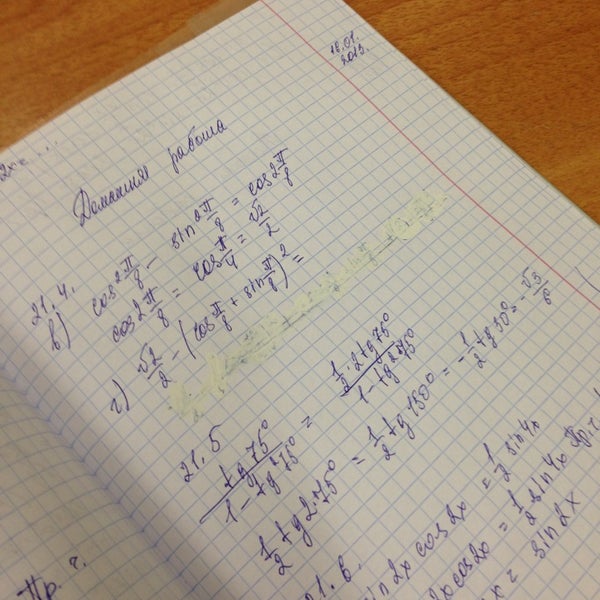 18.01.
2013.
Домашняя работа
21.4.
в) cos²π/8 - sin²π/8 = cos2π/8
cos2π/8 = cosπ/4 = √2/2
г) √2/2 - (cosπ/8 + sinπ/8)² =
21.5
tg75°/1-tg²75° = ½·2tg75°/1-tg²75°
½tg2·75° = ½tg150° = -½tg30° = -√3/6
21.6.
sin2x cos2x = ½sin4x
2xcos2x = ½sin4x
x = sin2x
Пр.